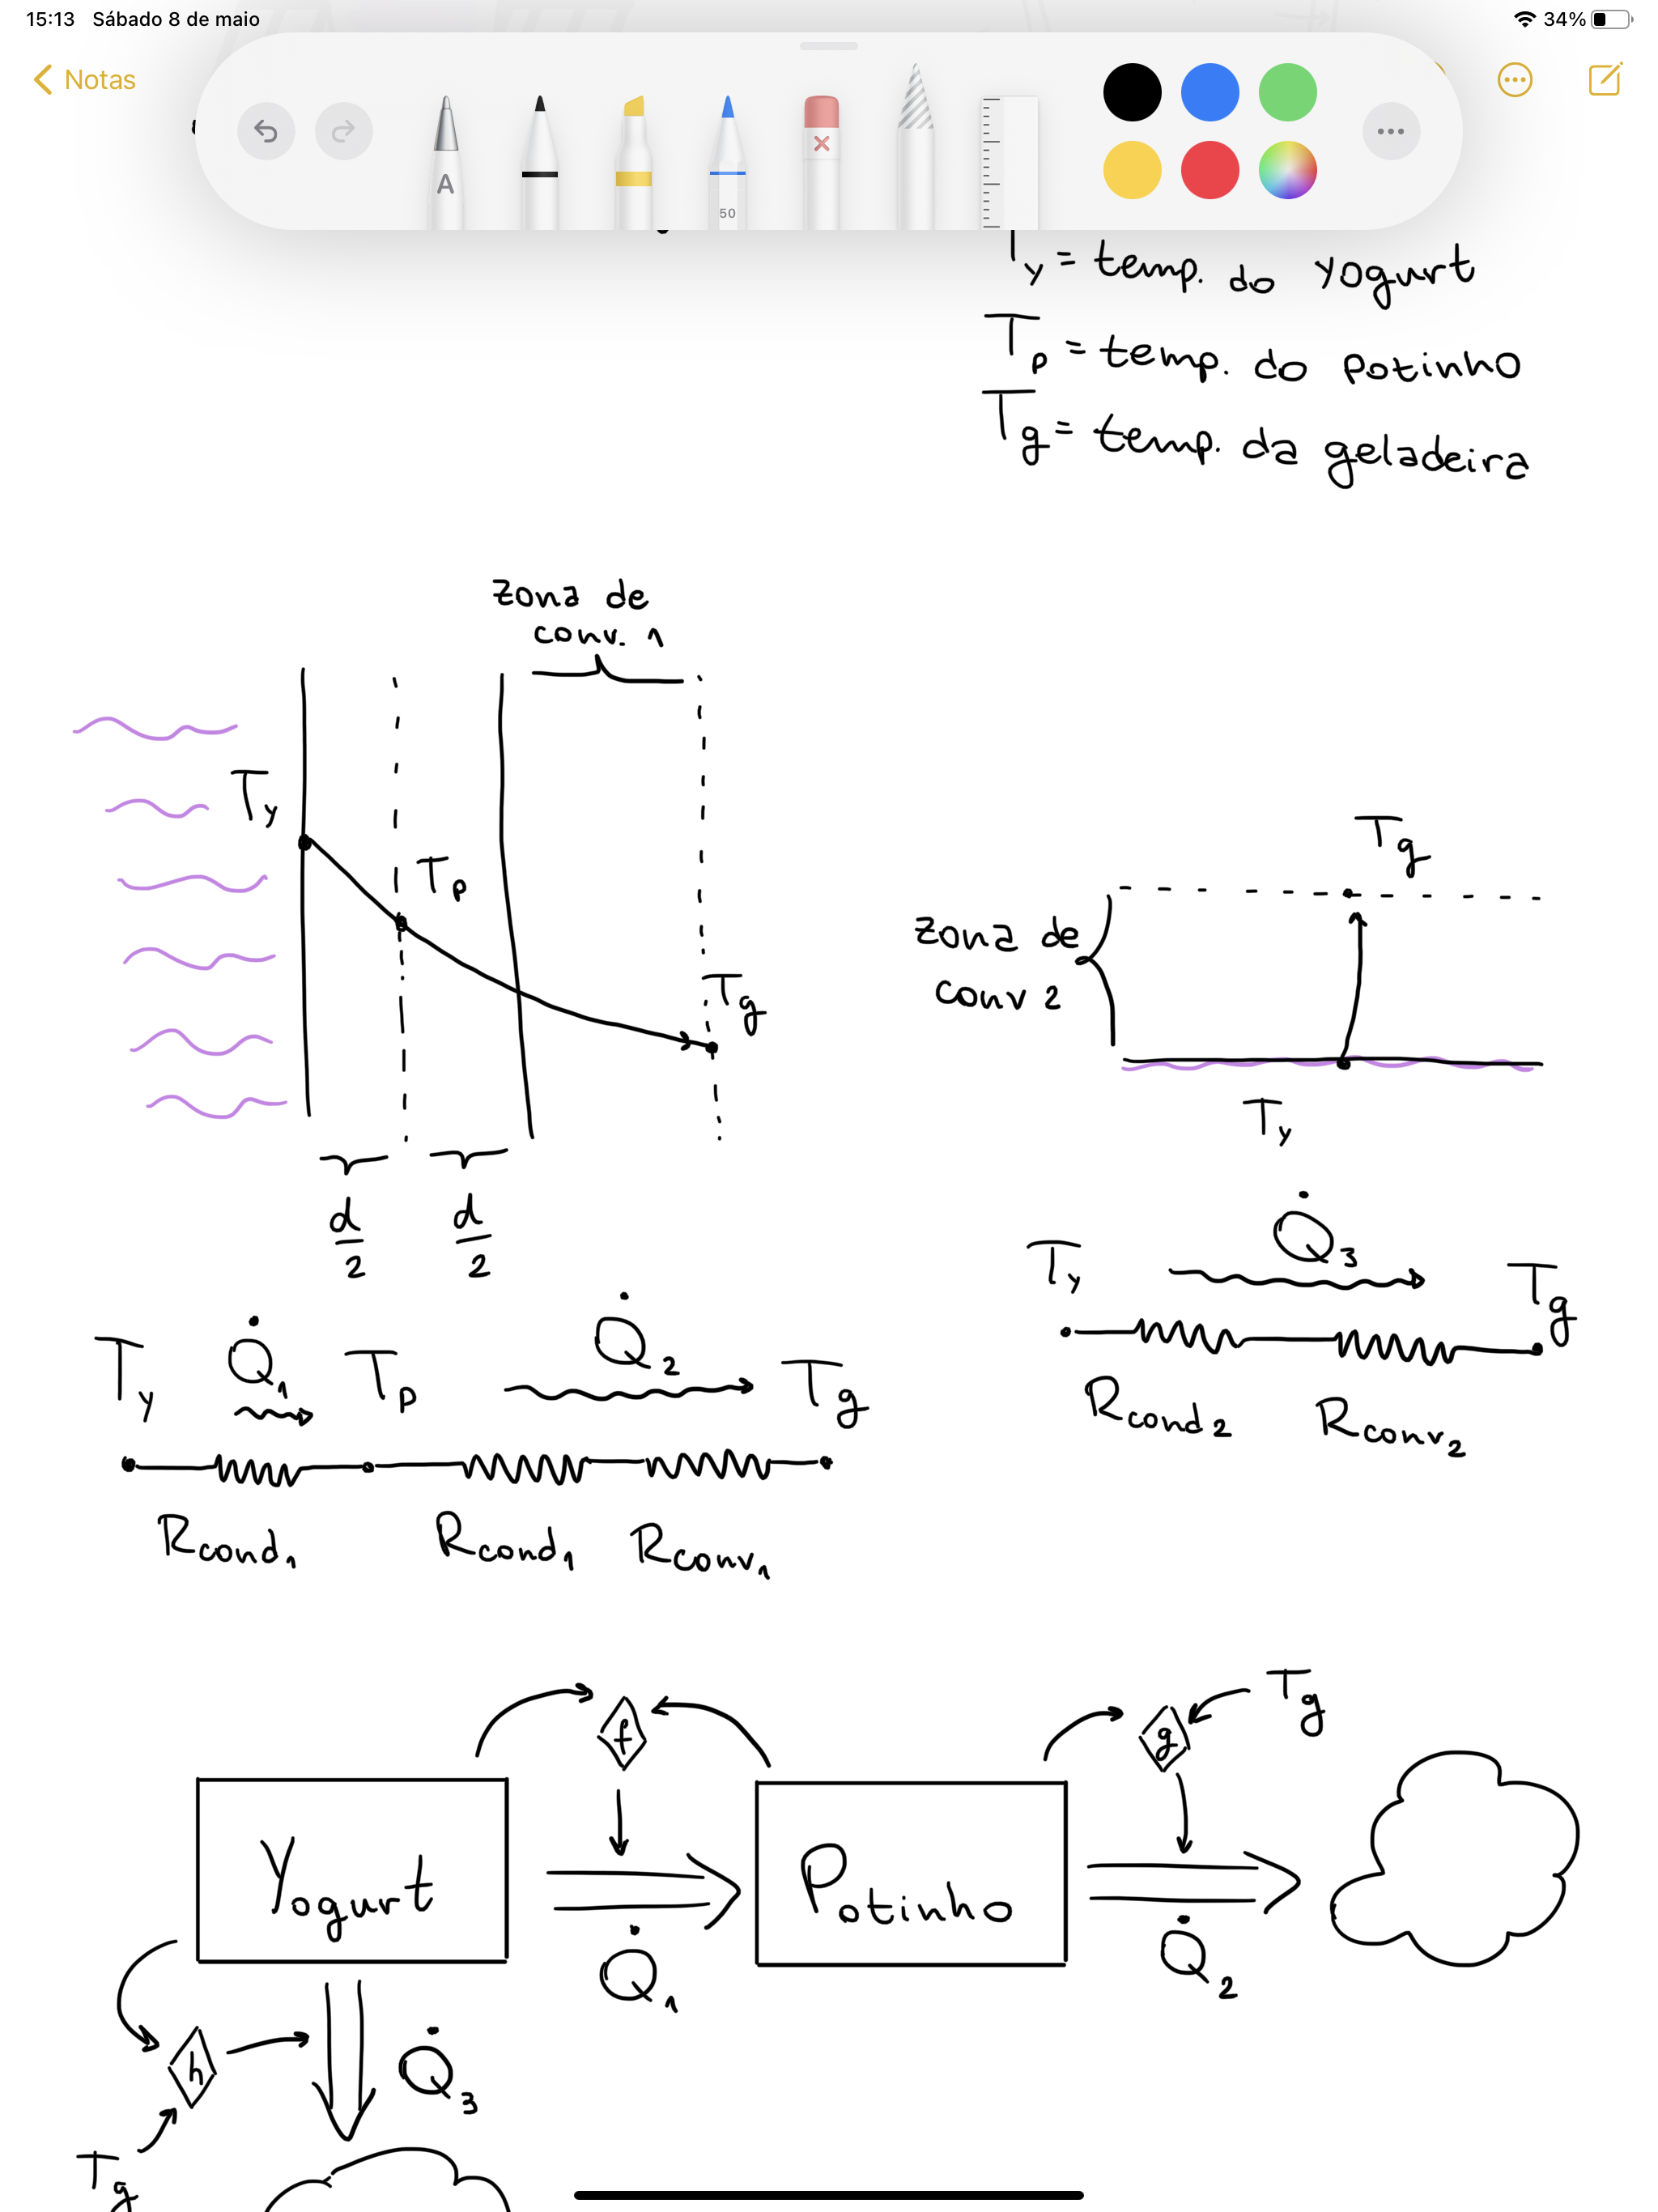 15:13 Sábado 8 de maio
34%
Notas
A
50
Ty = temp. do yogurt
Tp = temp. do potinho
Tg = temp. da geladeira
zona de
conv. 1
Ty
Tp
Tg
d/2
d/2
Tg
zona de
conv 2
Ty
Ty Q̇1 Tp Q̇2 Tg
Rcond1 Rcond1 Rconv1
Ty Q̇3 Tg
Rcond2 Rconv2
f
g
Tg
Yogurt
Potinho
Q̇1
Q̇2
h
Q̇3
Tg